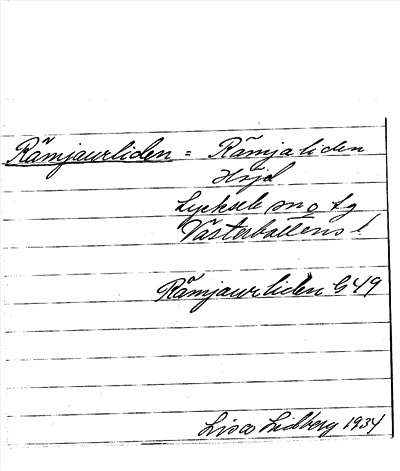 Rämjaurliden = Rämjaliden
Höjd
Lycksele sn o tg
Västerbottens l
Rämjaurliden G49
Lisa Lidberg 1934